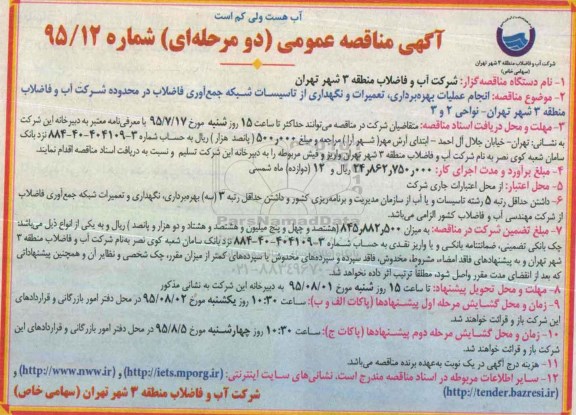 آب هست ولی کم است
آگهی مناقصه عمومی (دو مرحله‌ای) شماره ۹۵/۱۲
شرکت آب و فاضلاب منطقه ۳ شهر تهران
(سهامی خاص)
۱- نام دستگاه مناقصه‌گزار: شرکت آب و فاضلاب منطقه ۳ شهر تهران
۲- موضوع مناقصه: انجام عملیات بهره‌برداری، تعمیرات و نگهداری از تاسیسات شبکه جمع‌آوری فاضلاب در محدوده شرکت آب و فاضلاب
منطقه ۳ شهر تهران- نواحی ۲ و ۳
۳- مهلت و محل دریافت اسناد مناقصه: متقاضیان شرکت در مناقصه می‌توانند حداکثر تا ساعت ۱۵ روز شنبه مورخ ۹۵/۷/۱۷ با معرفی‌نامه معتبر به دبیرخانه این شرکت
به نشانی: تهران- خیابان جلال آل احمد - ابتدای آرش مهر( شهرآرا) مراجعه و مبلغ ۵۰۰,۰۰۰( پانصد هزار ) ریال به حساب شماره ۳-۴۰۴۱۰۹-۴۰-۸۸۴ نزد بانک
سامان شعبه کوی نصر به نام شرکت آب و فاضلاب منطقه ۳ شهر تهران واریز و فیش مربوطه را به دبیرخانه این شرکت تسلیم و نسبت به دریافت اسناد مناقصه اقدام نمایند.
۴- مبلغ برآورد و مدت اجرای کار: ۳۴,۸۶۲,۷۵۰,۰۰۰ ریال و ۱۲ (دوازده) ماه شمسی
۵- محل اعتبار: از محل اعتبارات جاری شرکت
۶- داشتن حداقل رتبه ۵ رشته تاسیسات و یا آب از سازمان مدیریت و برنامه‌ریزی کشور و داشتن حداقل رتبه ۳ (سه) بهره‌برداری، نگهداری و تعمیرات شبکه جمع‌آوری فاضلاب
از شرکت مهندسی آب و فاضلاب کشور الزامی می‌باشد.
۷- مبلغ تضمین شرکت در مناقصه: به میزان ۸۴۵,۸۸۲,۵۰۰(هشتصد و چهل و پنج میلیون و هشتصد و هشتاد و دو هزار و پانصد ) ریال و به یکی از انواع ذیل می‌باشد:
چک بانکی تضمینی، ضمانتنامه بانکی و یا واریز نقدی به حساب شماره ۳-۴۰۴۱۰۹-۴۰-۸۸۴ نزد بانک سامان شعبه کوی نصر به‌نام شرکت آب و فاضلاب منطقه ۳
شهر تهران و به پیشنهادهای فاقد امضاء، مشروط، مخدوش، فاقد سپرده و سپرده‌های مخدوش یا سپرده‌های کمتر از میزان مقرر، چک شخصی و نظایر آن و همچنین پیشنهاداتی
که بعد از انقضای مدت مقرر واصل شود، مطلقاً ترتیب اثر داده نخواهد شد.
۸- مهلت و محل تحویل پیشنهاد: تا ساعت ۱۵ روز شنبه مورخ ۹۵/۰۸/۰۱ به دبیرخانه این شرکت به نشانی مذکور
۹- زمان و محل گشایش مرحله اول پیشنهادها (پاکات الف و ب): ساعت ۱۰:۳۰ روز یکشنبه مورخ ۹۵/۰۸/۰۲ در محل دفتر امور بازرگانی و قراردادهای
این شرکت باز و قرائت خواهند شد.
۱۰- زمان و محل گشایش مرحله دوم پیشنهادها (پاکات ج): ساعت ۱۰:۳۰ روز چهارشنبه مورخ ۹۵/۸/۵ در محل دفتر امور بازرگانی و قراردادهای این
شرکت باز و قرائت خواهند شد.
۱۱- هزینه درج آگهی در یک نوبت به‌عهده برنده مناقصه می‌باشد.
۱۲- سایر اطلاعات مربوطه در اسناد مناقصه مندرج است. نشانی‌های سایت اینترنتی: (http://iets.mporg.ir) و (http://www.nww.ir) و
(http://tender.bazresi.ir)
شرکت آب و فاضلاب منطقه ۳ شهر تهران (سهامی خاص)
ParsNamadData